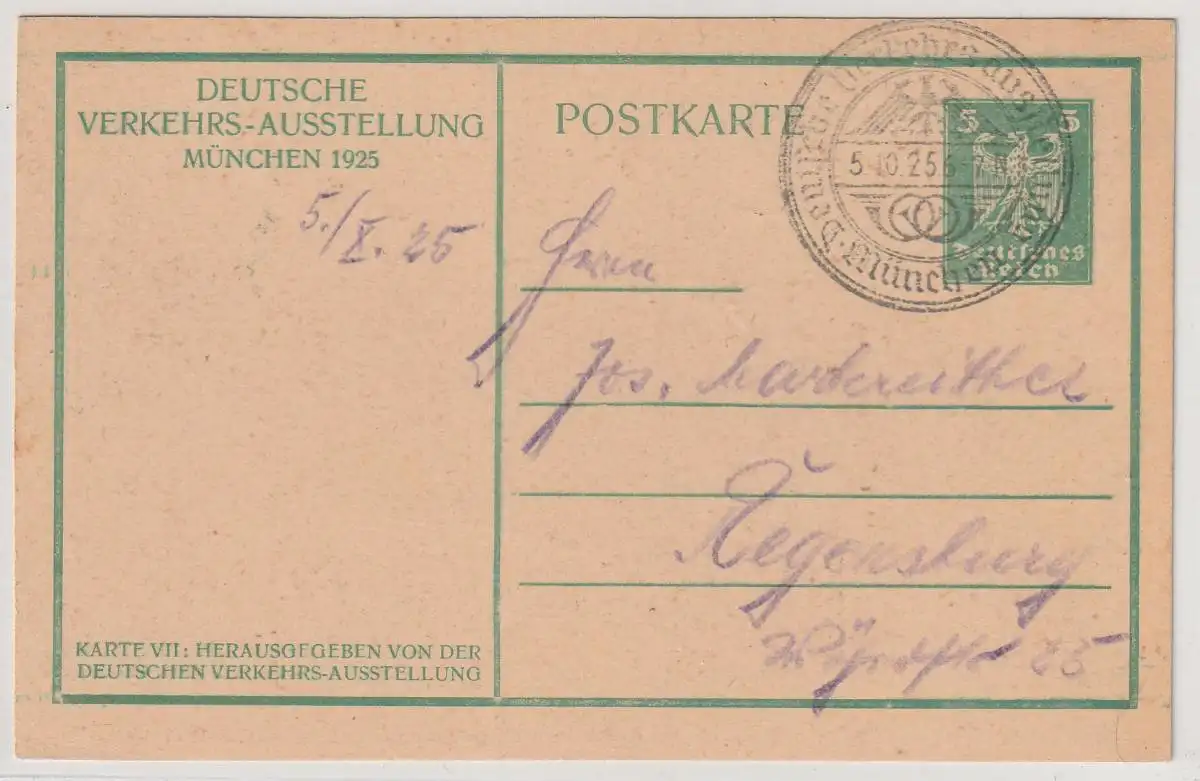 DEUTSCHE
VERKEHRS-AUSSTELLUNG
MÜNCHEN 1925
5./X. 25
KARTE VII: HERAUSGEGEBEN VON DER
DEUTSCHEN VERKEHRS-AUSSTELLUNG
POSTKARTE
Deutsche Verkehrsausst
5.10.25 6-7 N
München
5 5
Deutsches
Reich
Herrn
Jos.
Regensburg
25